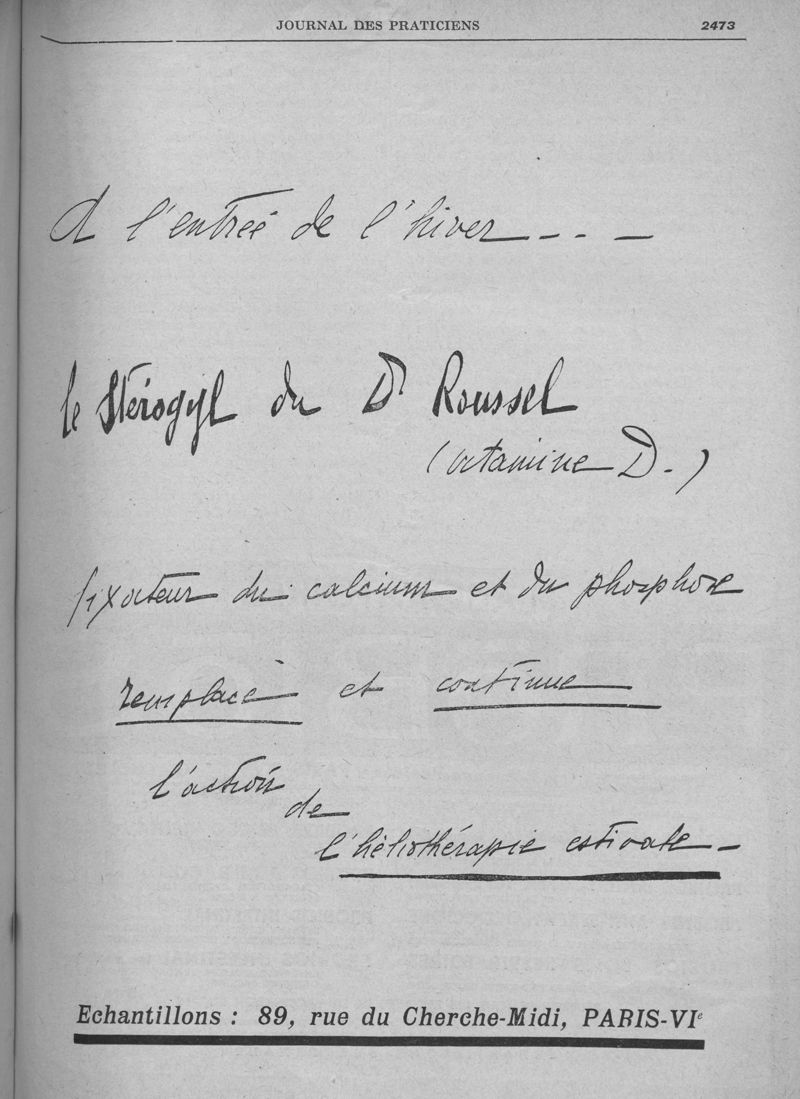 JOURNAL DES PRATICIENS 2473
A l'entrée de l'hiver - - -
le Stérogyl du Dr Roussel
(vitamine D.)
fixateur du calcium et du phosphore
remplace et continue
l'action
de
l'héliothérapie estivale -
Echantillons : 89, rue du Cherche-Midi, PARIS-VIe